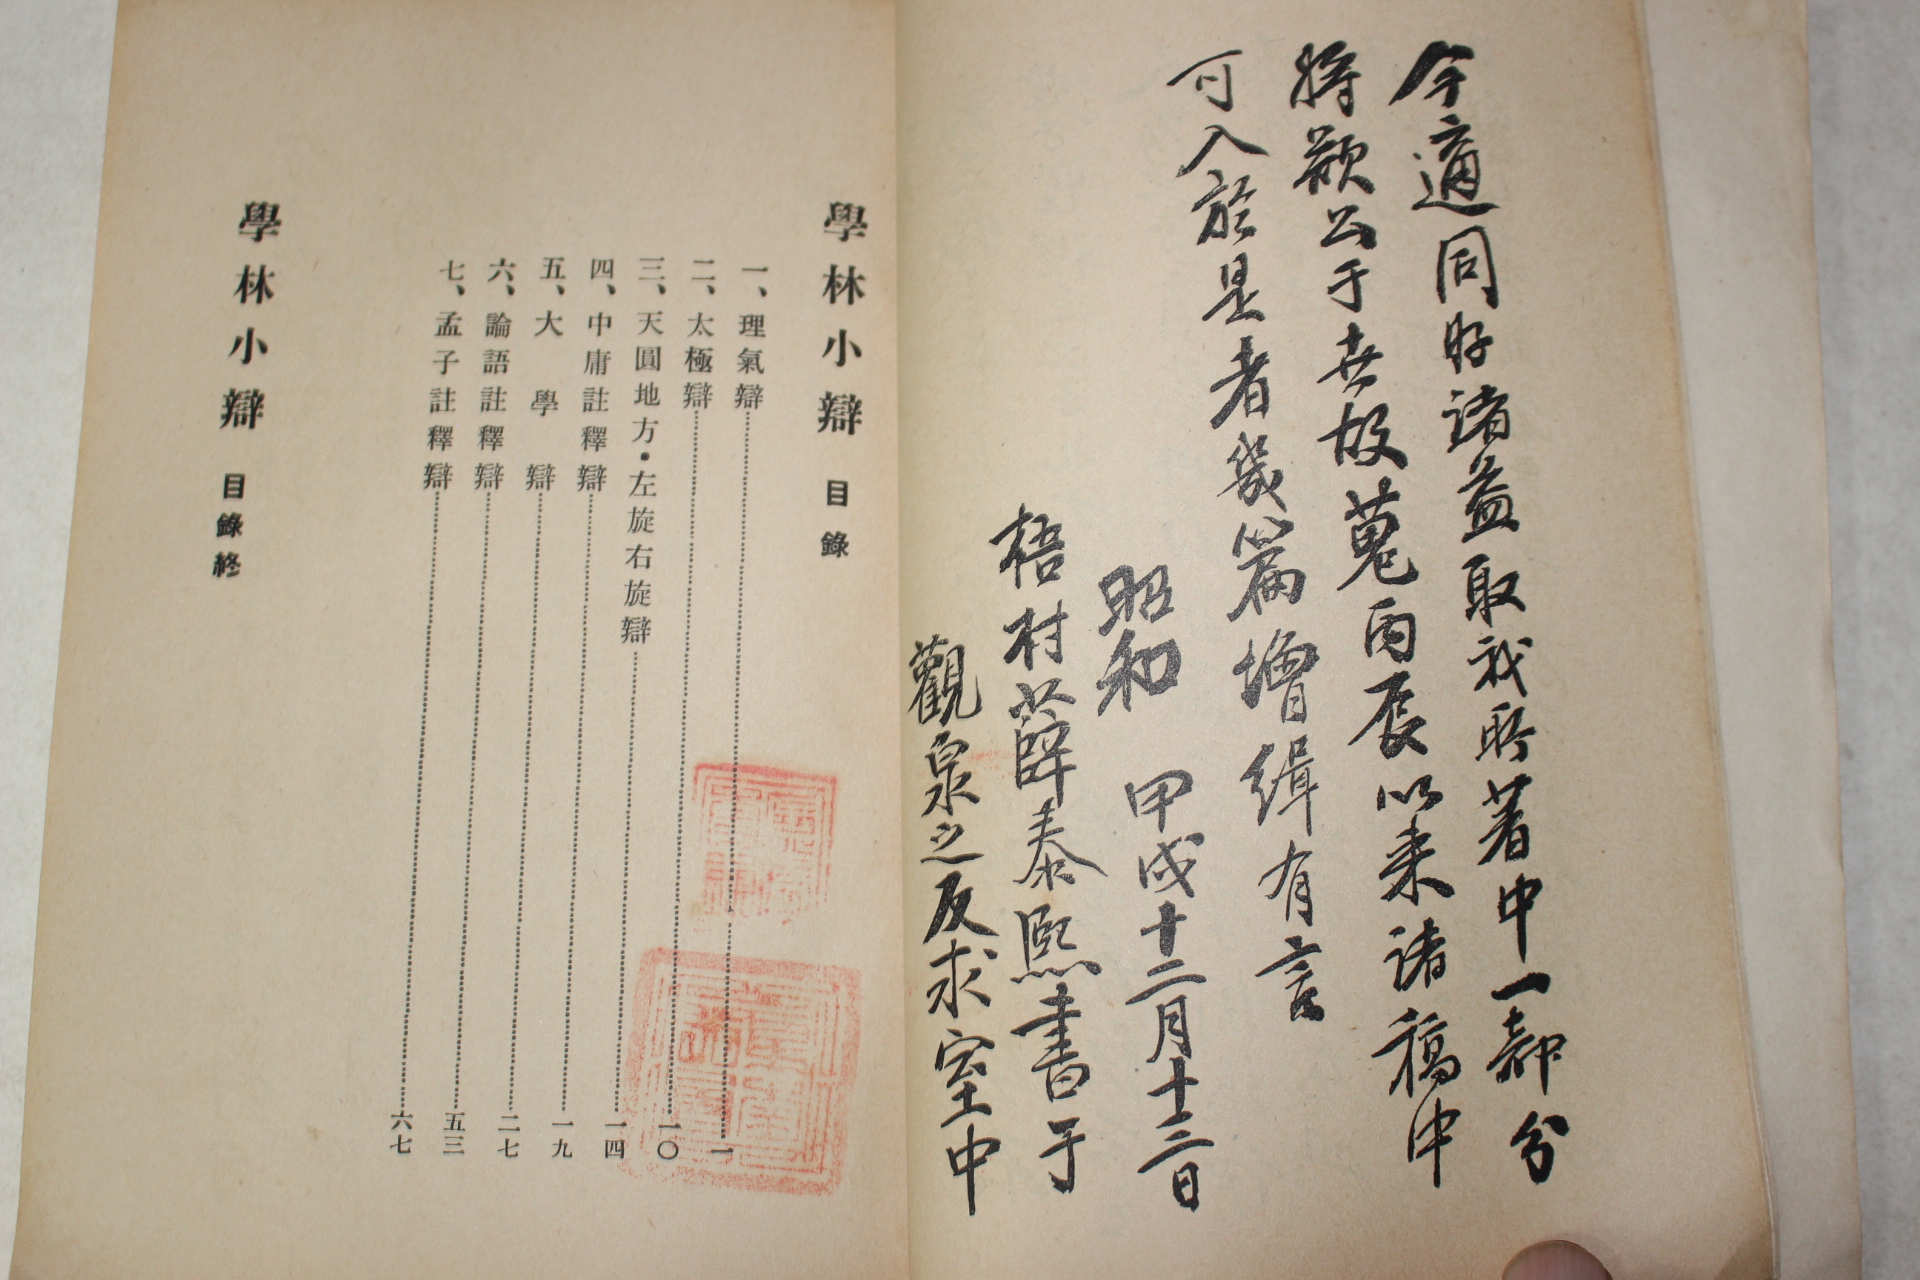 今適同好諸益取我所著中一部分
將欲公于世故蒐丙辰以来諸稿中
可入於是者幾篇增緝有言
昭和 甲戌十二月十二日
梧村 薛泰熙書于
觀泉之反求室中
學林小辯 目錄
一、理氣辯 一
二、太極辯 一〇
三、天圓地方・左旋右旋辯 一四
四、中庸註釋辯 一九
五、大學辯 二七
六、論語註釋辯 五三
七、孟子註釋辯 六七
學林小辯 目錄終